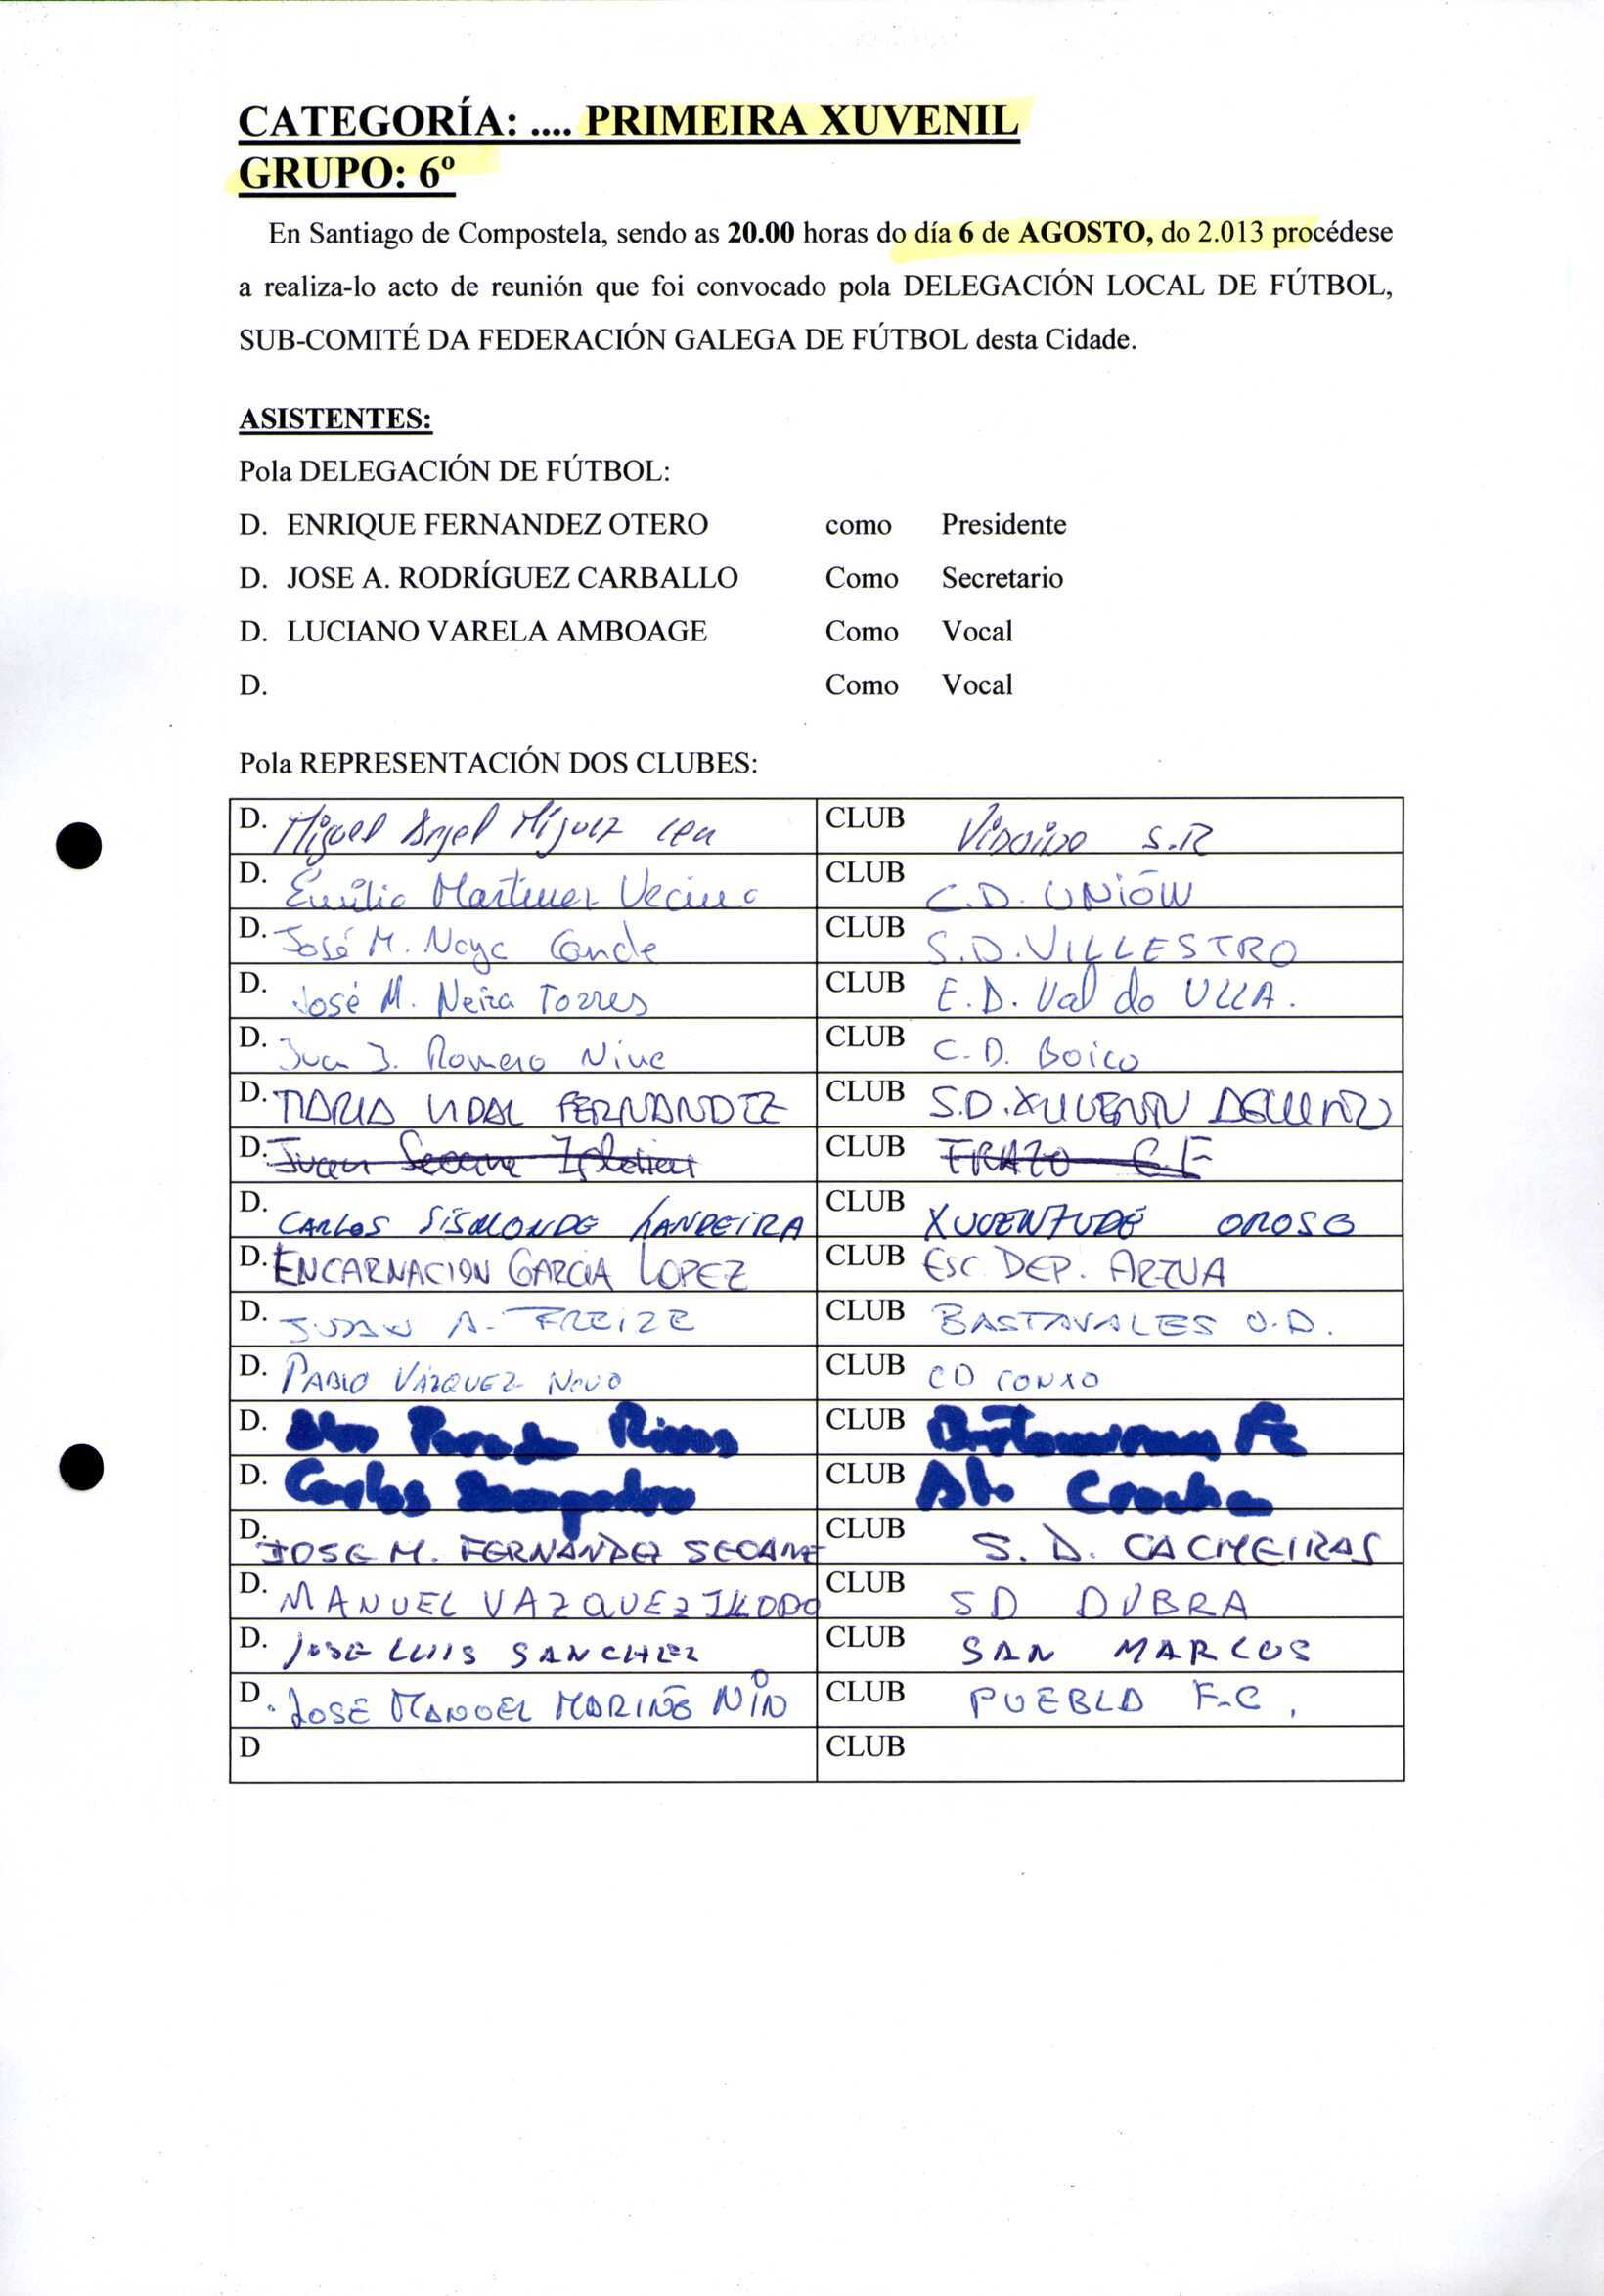 CATEGORÍA: .... PRIMEIRA XUVENIL
GRUPO: 6º
En Santiago de Compostela, sendo as 20.00 horas do día 6 de AGOSTO, do 2.013 procédese
a realiza-lo acto de reunión que foi convocado pola DELEGACIÓN LOCAL DE FÚTBOL,
SUB-COMITÉ DA FEDERACIÓN GALEGA DE FÚTBOL desta Cidade.
ASISTENTES:
Pola DELEGACIÓN DE FÚTBOL:
D. ENRIQUE FERNANDEZ OTERO como Presidente
D. JOSE A. RODRÍGUEZ CARBALLO Como Secretario
D. LUCIANO VARELA AMBOAGE Como Vocal
D. Como Vocal
Pola REPRESENTACIÓN DOS CLUBES:
D. Miguel Angel Míguez CLUB S.R
D. Emilio Martinez CLUB C.D. UNIÓN
D. José M. Noya Conde CLUB S.D. VILLESTRO
D. José M. Neira Torres CLUB E.D. Val do ULLA.
D. Juan J. Romero CLUB C.D. Boiro
D. MARIA VIDAL FERNANDEZ CLUB S.D. XUVENTU
D. Juan Seoane Iglesias CLUB ERAZO C.F
D. CARLOS SISMONDE LANDEIRA CLUB XUVENTUDE OROSO
D. ENCARNACION GARCIA LOPEZ CLUB ESC DEP. ARZUA
D. JUAN A. FREIRE CLUB BASTAVALES S.D.
D. PABLO VÁZQUEZ NOVO CLUB CD CONXO
D. Parada Rivas CLUB Fc
D. Carlos Sampedro CLUB
D. JOSE M. FERNÁNDEZ SEOANE CLUB S.D. CACHEIRAS
D. MANUEL VAZQUEZ CLUB SD DUBRA
D. JOSE LUIS SANCHEZ CLUB SAN MARCOS
D. JOSE MANUEL MARIÑO CLUB PUEBLA F.C,
D CLUB